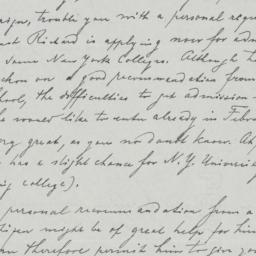 trouble you with a personal requ
Richard is applying now for adm
Some New York Colleges. Although h
a good recommendation from
hool, the difficulties to get admission
he would like to enter already in Febr
great, as you no doubt know. At
has a slight chance for N.Y. Universi
college).
personal recommendation from a
might be of great help for him
therefore permit him to give you